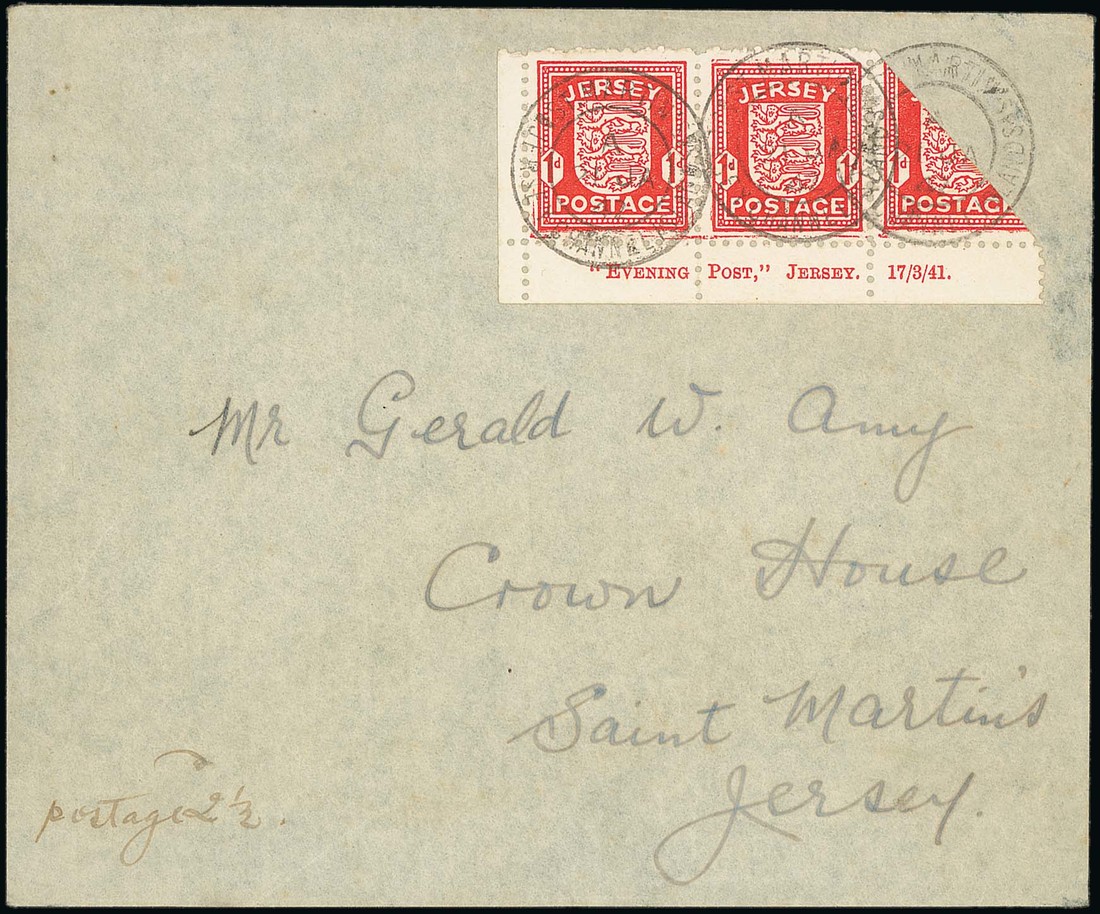 JERSEY JERSEY
1d 1d 1d 1d
POSTAGE POSTAGE POSTAG
"EVENING POST," JERSEY. 17/3/41.
Mr Gerald W. Amy
Crown House
Saint Martin's
Jersey.
postage 2½.